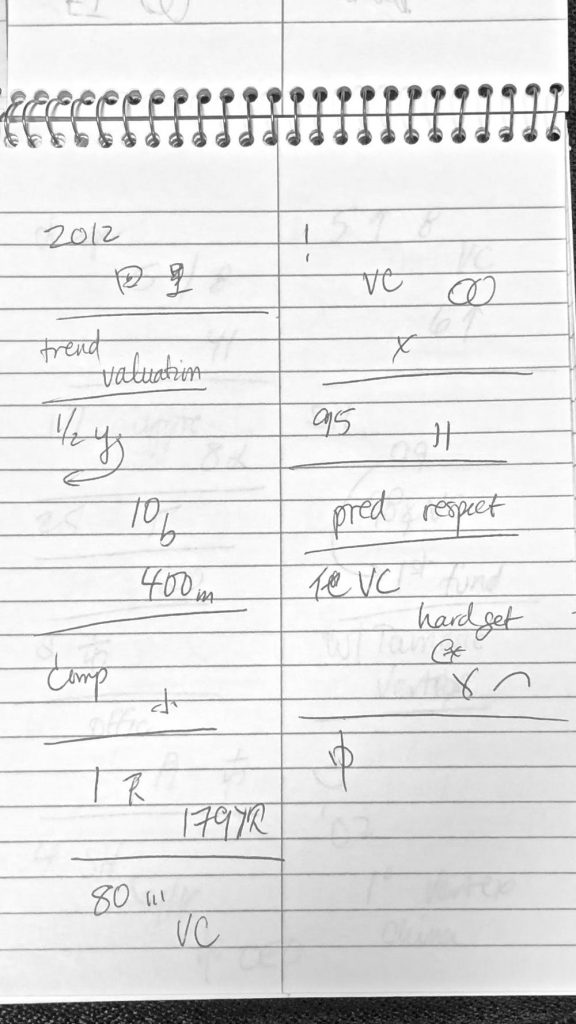 2012
回 里
trend
valuation
1/2 y
10b
400m
Comp
小
1 R
179YR
80 '''
VC
!
VC
x
95 11
pred respect
VC
hard get
中